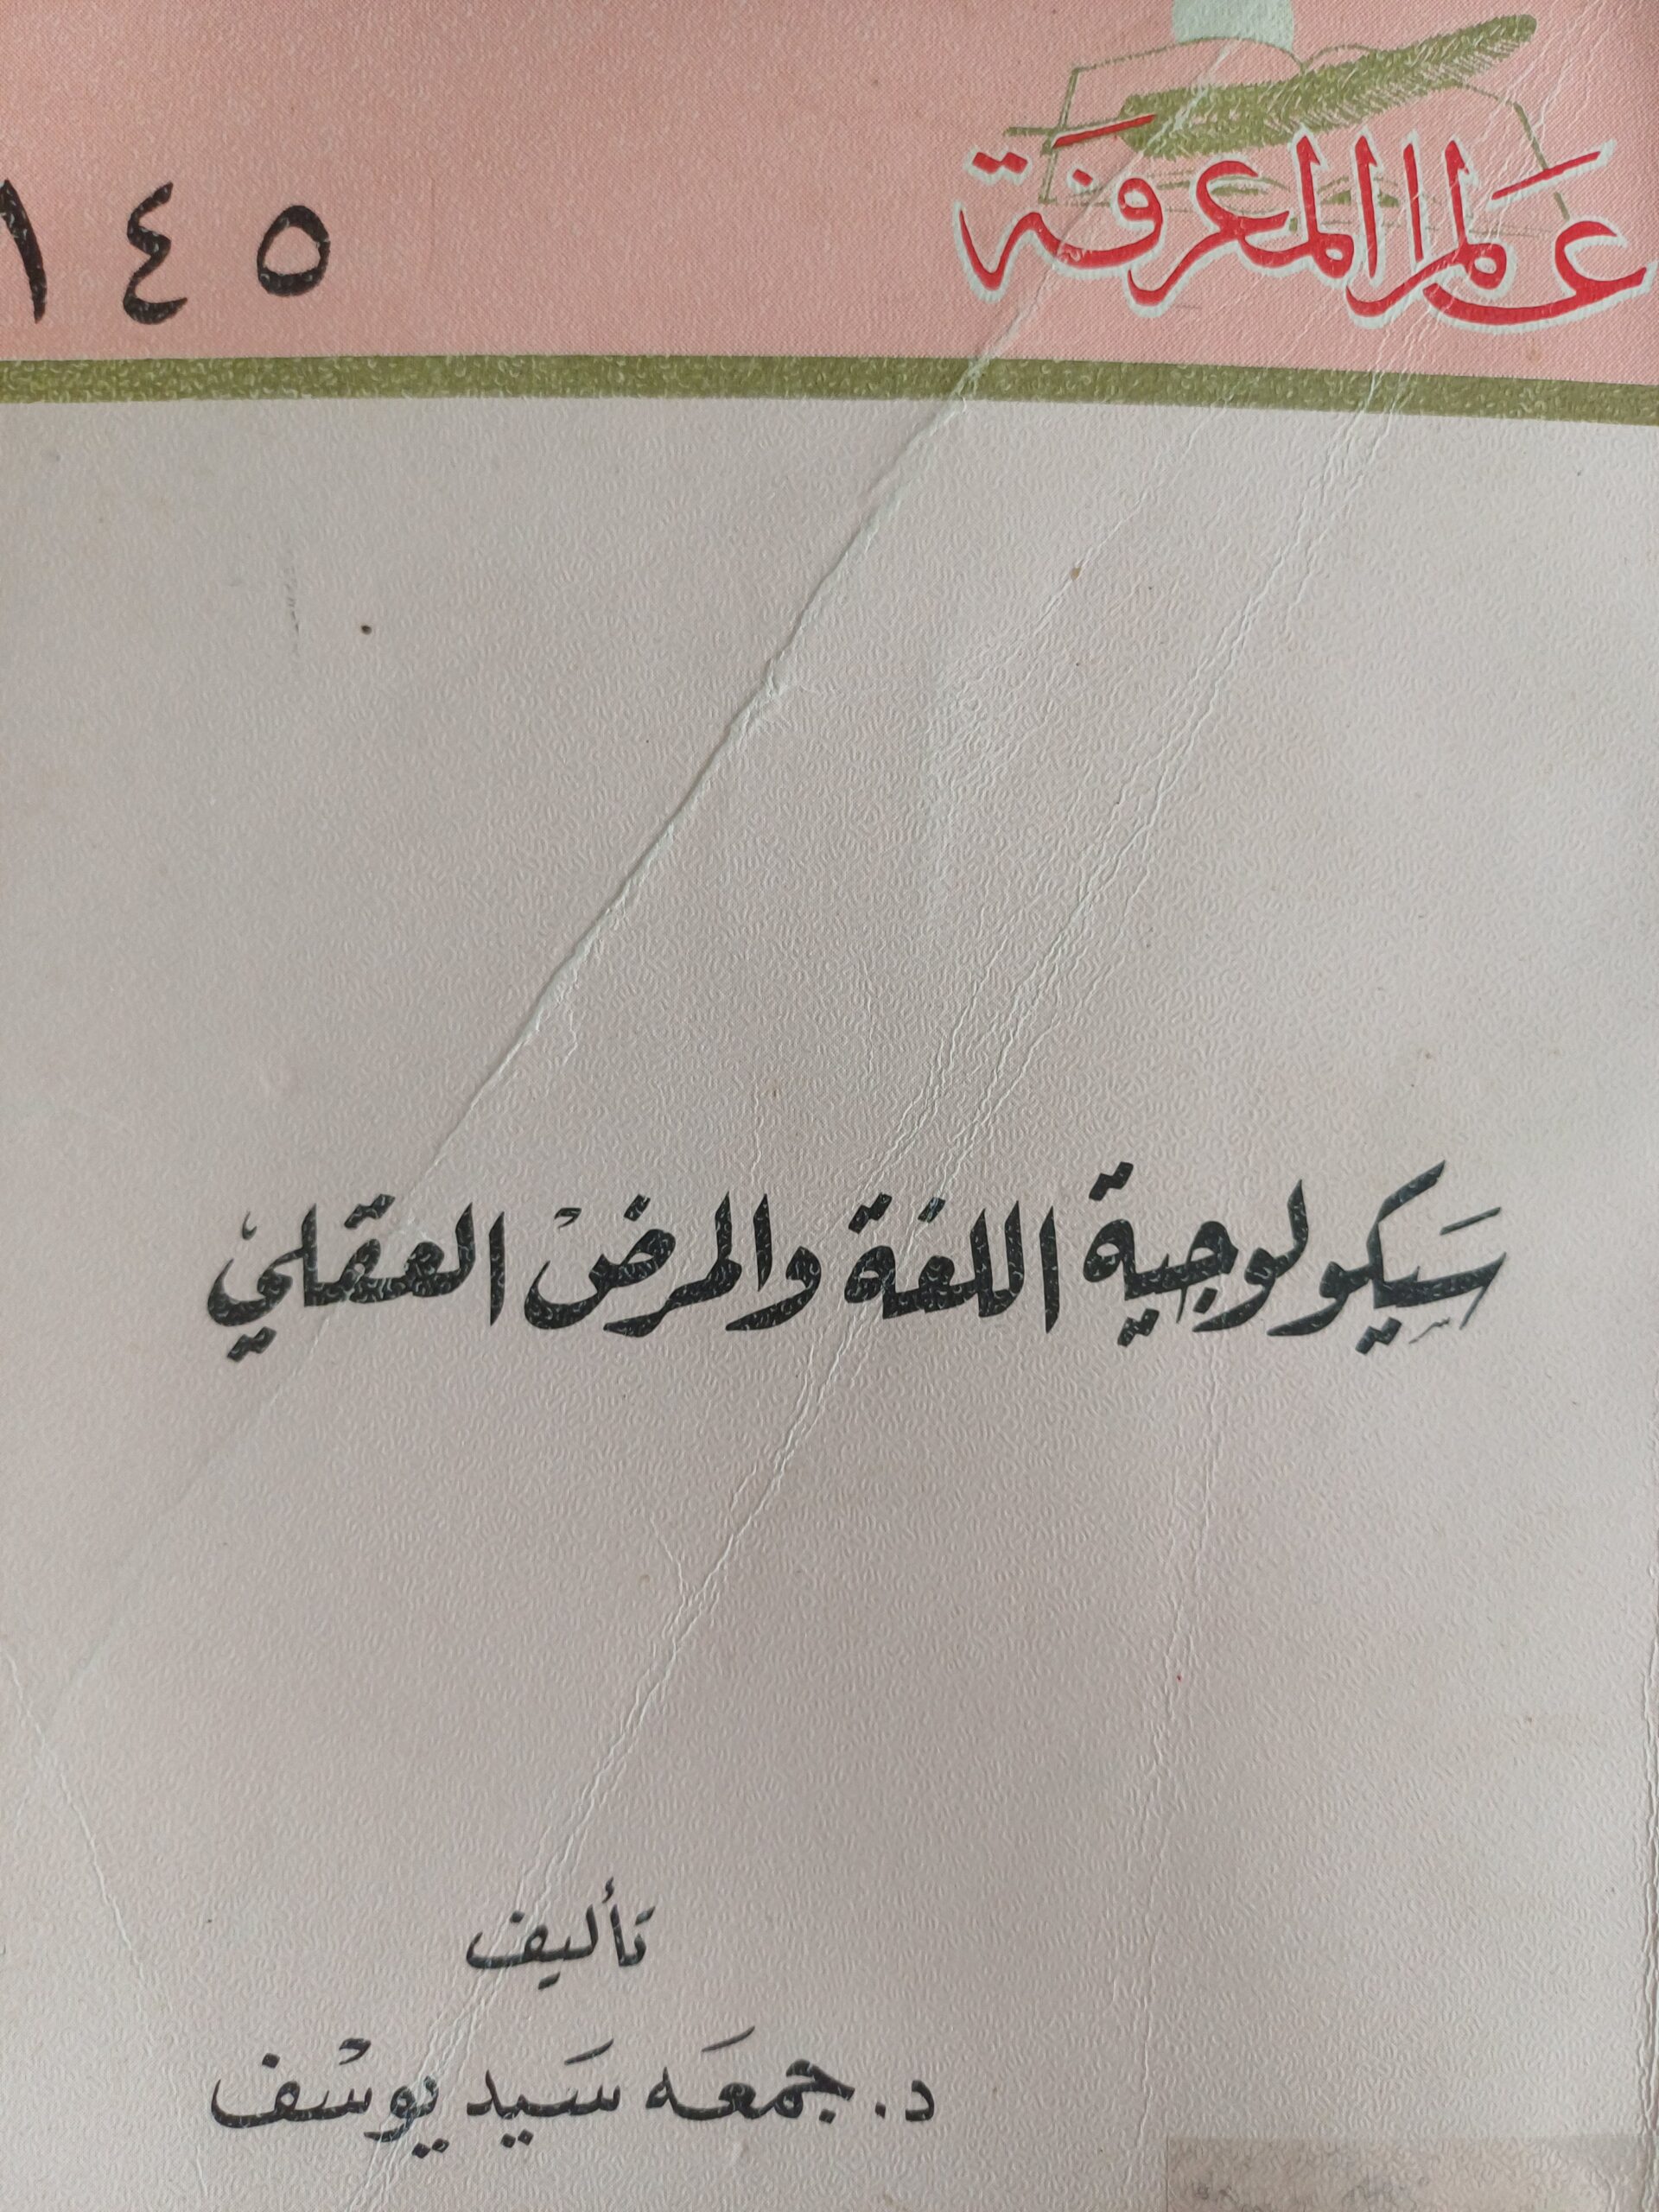 عالم المعرفة
١٤٥
سيكولوجية اللغة والمرض العقلي
تأليف
د. جمعه سيد يوسف